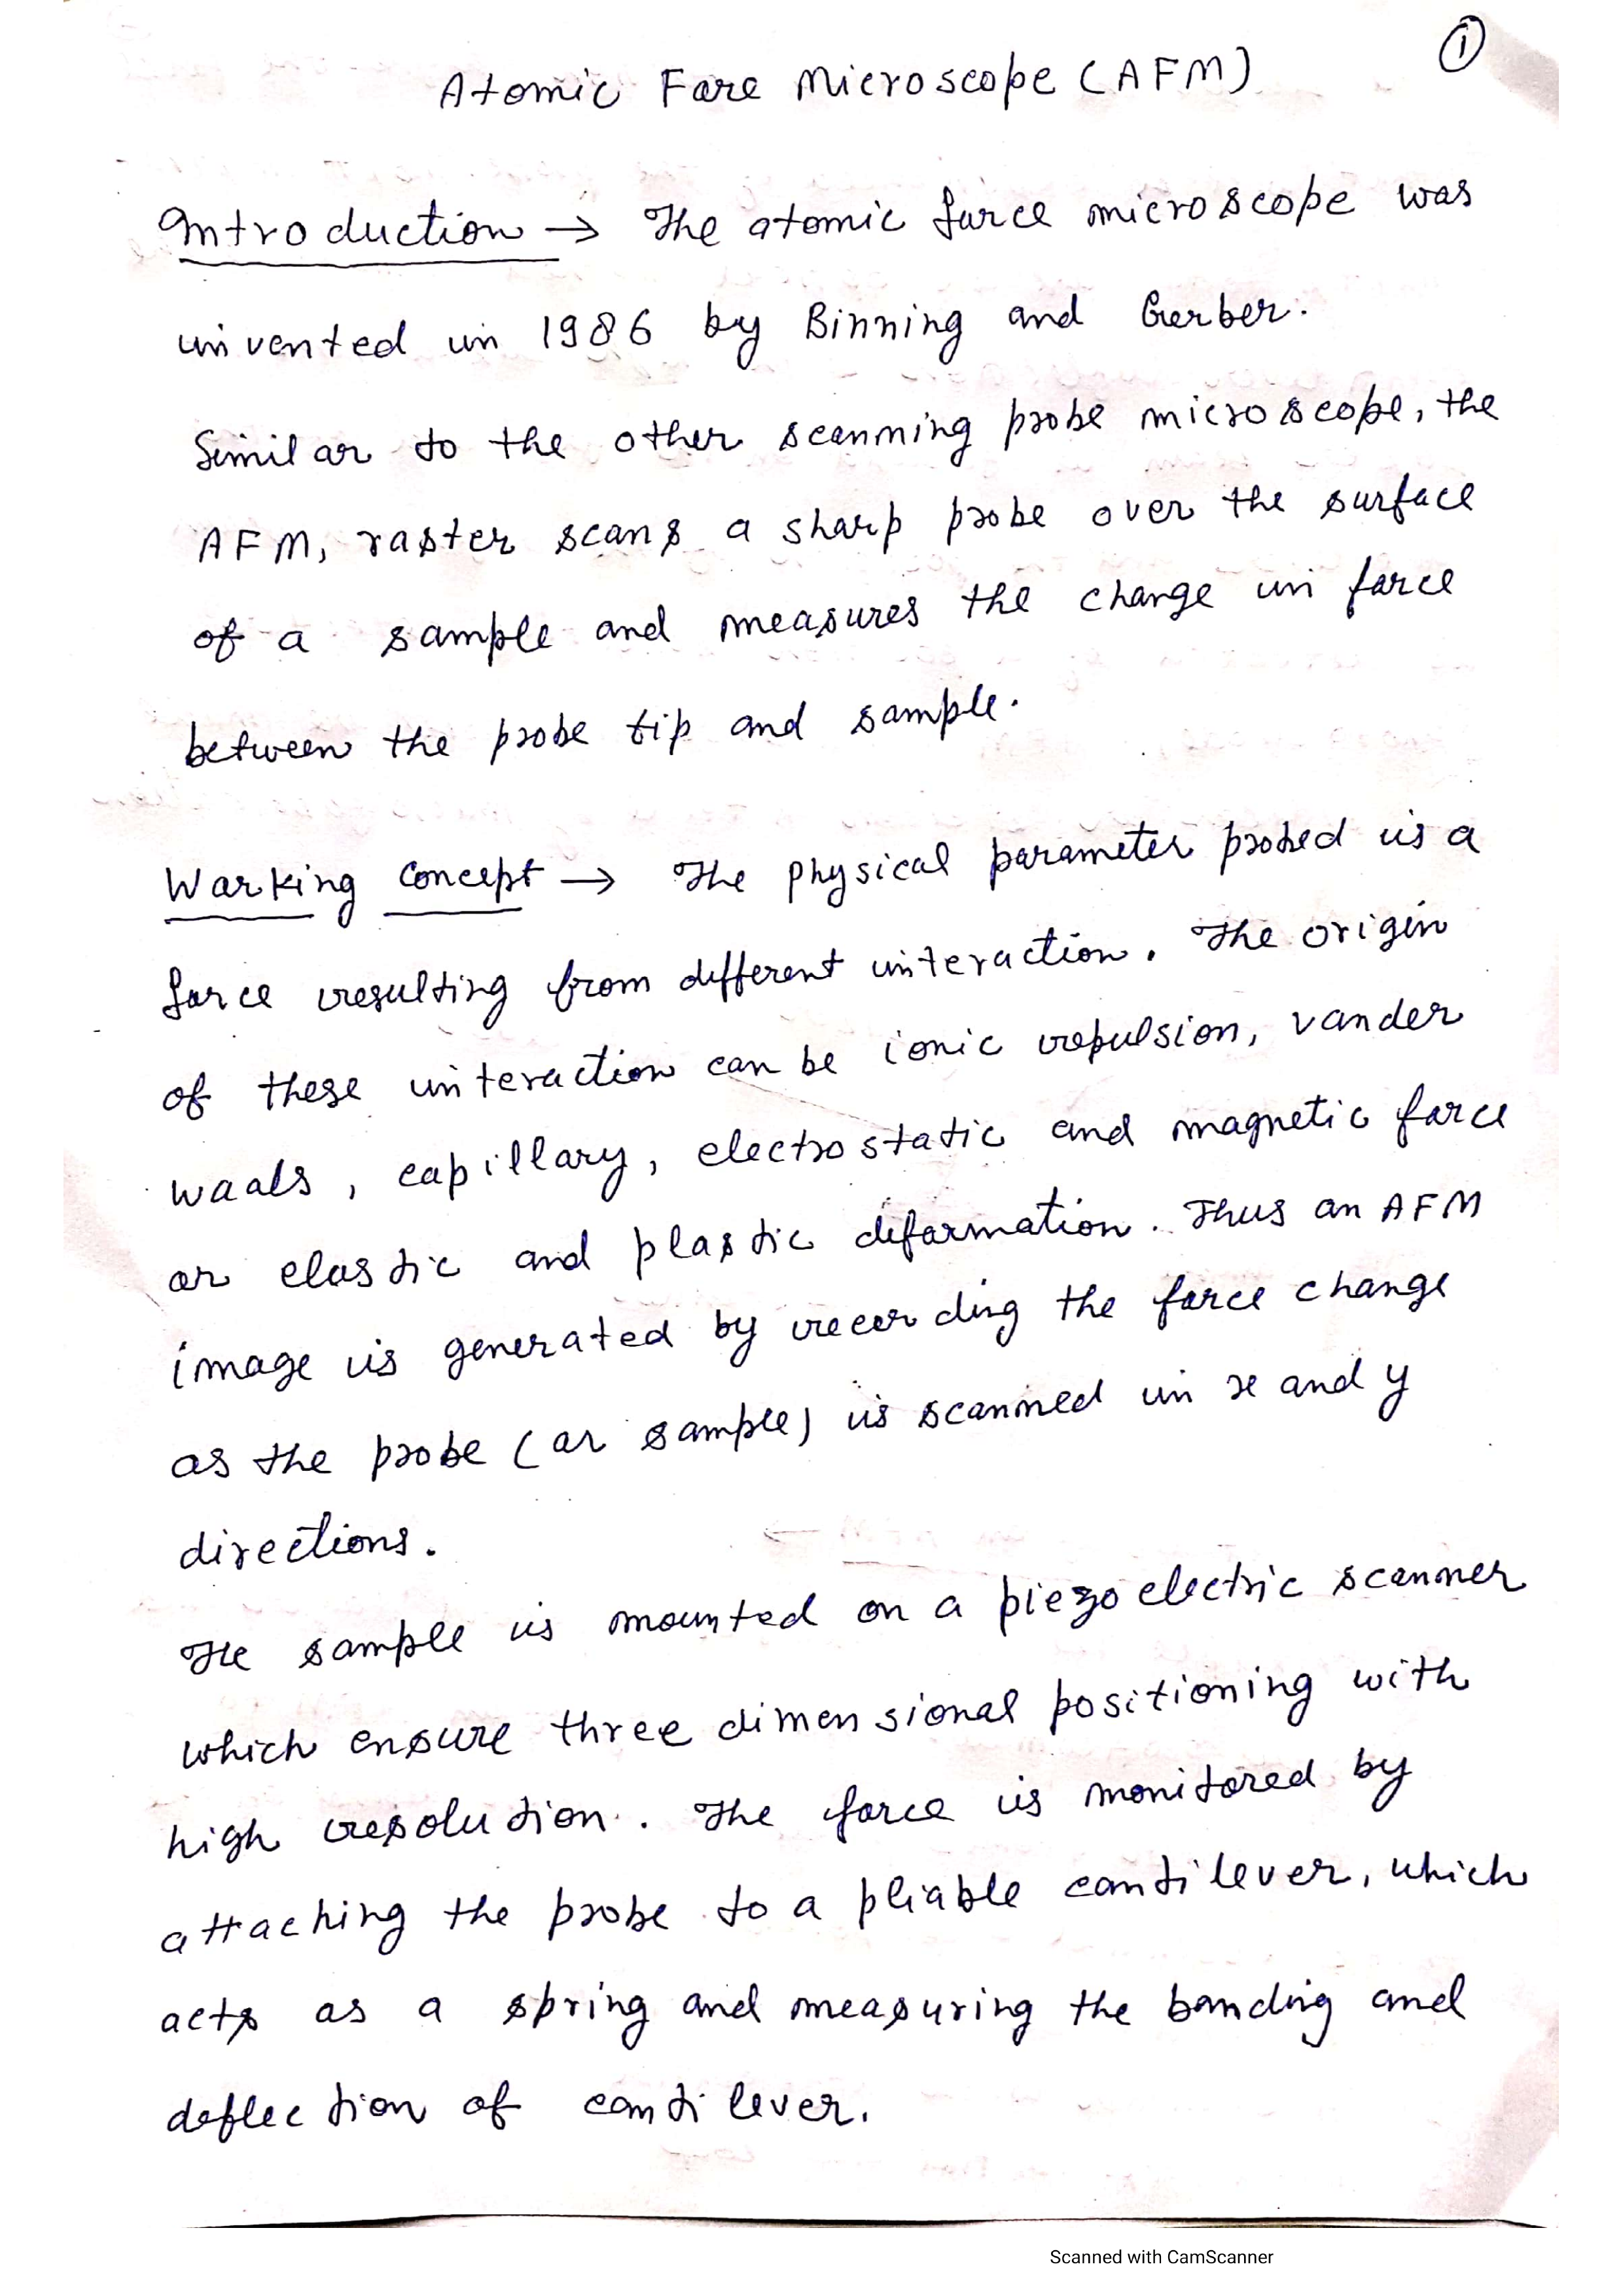 ①
Atomic Force Microscope (AFM)
Introduction → The atomic force microscope was
invented in 1986 by Binning and Gerber.
Similar to the other scanning probe microscope, the
AFM, raster scans a sharp probe over the surface
of a sample and measures the change in force
between the probe tip and sample.
Working Concept → The physical parameter probed is a
force resulting from different interaction. The origin
of these interaction can be ionic repulsion, vander
waals, capillary, electrostatic and magnetic force
or elastic and plastic deformation. Thus an AFM
image is generated by recording the force change
as the probe (or sample) is scanned in x and y
directions.
The sample is mounted on a piezoelectric scanner
which ensure three dimensional positioning with
high resolution. The force is monitored by
attaching the probe to a pliable cantilever, which
acts as a spring and measuring the banding and
deflection of cantilever.
Scanned with CamScanner